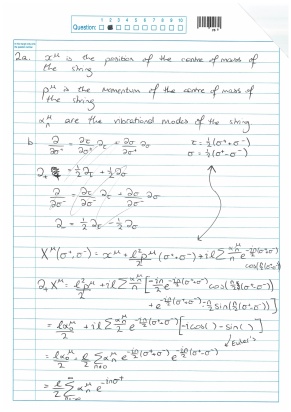 Question: 1 2 3 4 5 6 7 8 9 10
2a. x^μ is the position of the centre of mass of
the string
p^μ is the momentum of the centre of mass of
the string
α_n^μ are the vibrational modes of the string
b ∂/∂σ⁺ = ∂τ/∂σ⁺ ∂_τ + ∂σ/∂σ⁺ ∂_σ τ = ½(σ⁺+σ⁻)
σ = ½(σ⁺-σ⁻)
∂₊ = ½∂_τ + ½∂_σ
∂/∂σ⁻ = ∂τ/∂σ⁻ ∂_τ + ∂σ/∂σ⁻ ∂_σ
∂_ = ½∂_τ - ½∂_σ
X^μ(σ⁺,σ⁻) = x^μ + l²p^μ/2 (σ⁺+σ⁻) + il Σ α_n^μ/n e^{-in/2(σ⁺+σ⁻)}
cos(n/2(σ⁺-σ⁻))
∂₊X^μ = l²p^μ/2 + il Σ α_n^μ/n [-in/2 e^{-in/2(σ⁺+σ⁻)} cos(n/2(σ⁺-σ⁻))
+ e^{-in/2(σ⁺+σ⁻)} -n/2 sin(n/2(σ⁺-σ⁻))]
= lα₀^μ/2 + il Σ α_n^μ/2 e^{-in/2(σ⁺+σ⁻)} [-i cos( ) - sin( )]
Euler's
= lα₀^μ/2 + l/2 Σ_{n≠0} α_n^μ e^{-in/2(σ⁺+σ⁻)} e^{-in/2(σ⁺-σ⁻)}
= l/2 Σ_{n=-∞}^{∞} α_n^μ e^{-inσ⁺}